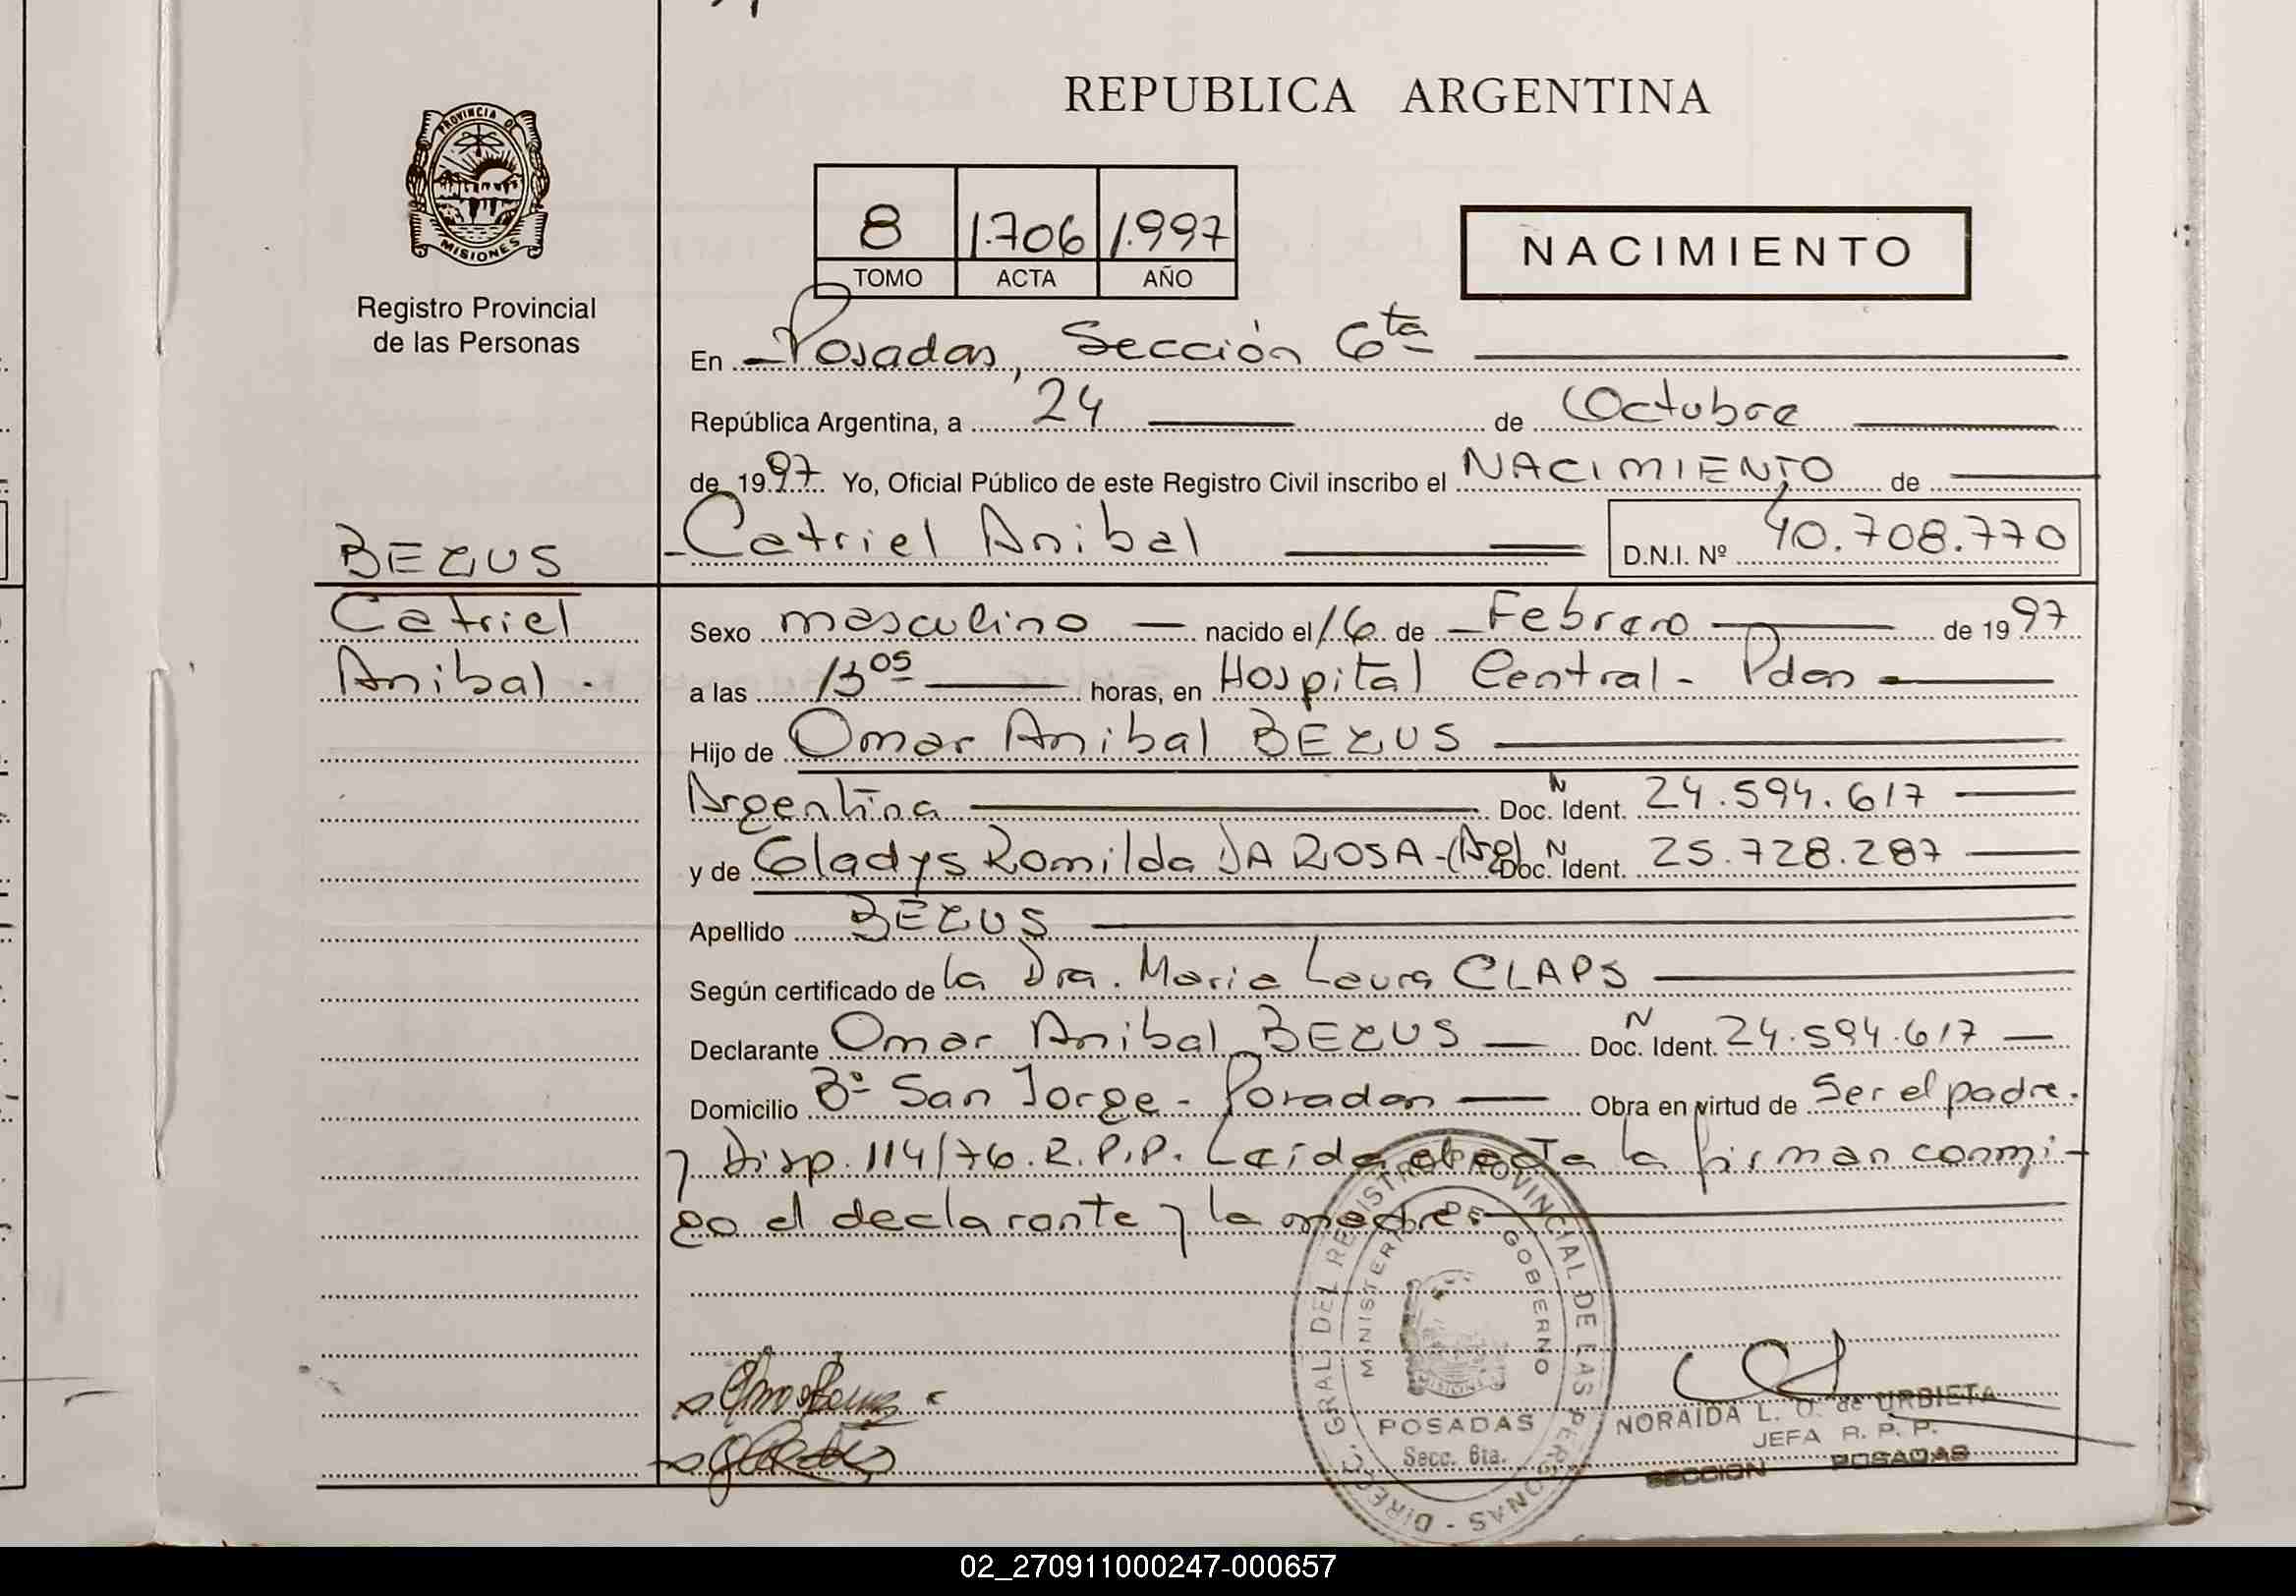 REPUBLICA ARGENTINA
PROVINCIA DE
MISIONES
Registro Provincial
de las Personas
8 1.706 1.997
TOMO ACTA AÑO
NACIMIENTO
En Posadas, Sección 6ta
República Argentina, a 24 de Octubre
de 1997 Yo, Oficial Público de este Registro Civil inscribo el NACIMIENTO de
Catriel Anibal D.N.I. Nº 40.708.770
BEZUS
Catriel
Anibal.
Sexo masculino nacido el 16 de Febrero de 1997
a las 13 05 horas, en Hospital Central - Pdas
Hijo de Omar Anibal BEZUS
Argentina N Doc. Ident. 24.594.617
y de Gladys Romilda DA ROSA-(Arg) N Doc. Ident. 25.728.287
Apellido BEZUS
Según certificado de la Dra. Maria Laura CLAPS
Declarante Omar Anibal BEZUS N Doc. Ident. 24.594.617
Domicilio Bº San Jorge - Posadas Obra en virtud de Ser el padre.
y Disp. 114/76. R.P.P. Leída el acta la firman conmi-
go el declarante y la madre
DIRECC. GRAL. DEL REGISTRO PROVINCIAL DE LAS PERSONAS -
MINISTERIO GOBIERNO
MISIONES
POSADAS
Secc. 6ta.
NORAIDA L. O. de URBIETA
JEFA R. P. P.
SECCION POSADAS
02_270911000247-000657